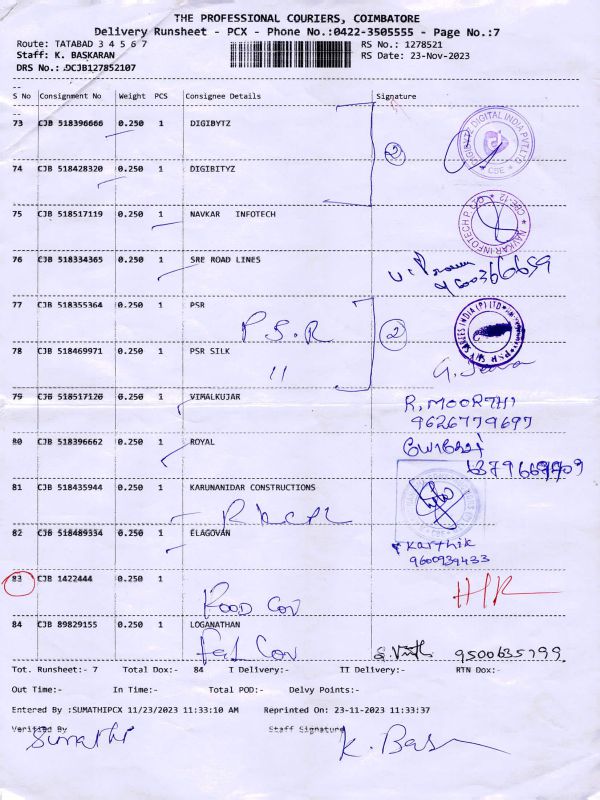 THE PROFESSIONAL COURIERS, COIMBATORE
Delivery Runsheet - PCX - Phone No.:0422-3505555 - Page No.:7
Route: TATABAD 3 4 5 6 7 RS No.: 1278521
Staff: K. BASKARAN RS Date: 23-Nov-2023
DRS No.: DCJB127852107
S No Consignment No Weight PCS Consignee Details Signature
73 CJB 518396666 0.250 1 DIGIBYTZ
2
74 CJB 518428320 0.250 1 DIGIBITYZ
75 CJB 518517119 0.250 1 NAVKAR INFOTECH
76 CJB 518334365 0.250 1 SRE ROAD LINES
77 CJB 518355364 0.250 1 PSR
P.S.R 2
78 CJB 518469971 0.250 1 PSR SILK
"
79 CJB 518517120 0.250 1 VIMALKUJAR R, MOORTHI
9626779697
80 CJB 518396662 0.250 1 ROYAL
81 CJB 518435944 0.250 1 KARUNANIDAR CONSTRUCTIONS
82 CJB 518489334 0.250 1 ELAGOVAN Karthik
9600939433
83 CJB 1422444 0.250 1
Rood Cov
84 CJB 89829155 0.250 1 LOGANATHAN
Cov 9500635799
Tot. Runsheet:- 7 Total Dox:- 84 I Delivery:- II Delivery:- RTN Dox:-
Out Time:- In Time:- Total POD:- Delvy Points:-
Entered By :SUMATHIPCX 11/23/2023 11:33:10 AM Reprinted On: 23-11-2023 11:33:37
Verified By Staff Signature
Sumathi K. Bas